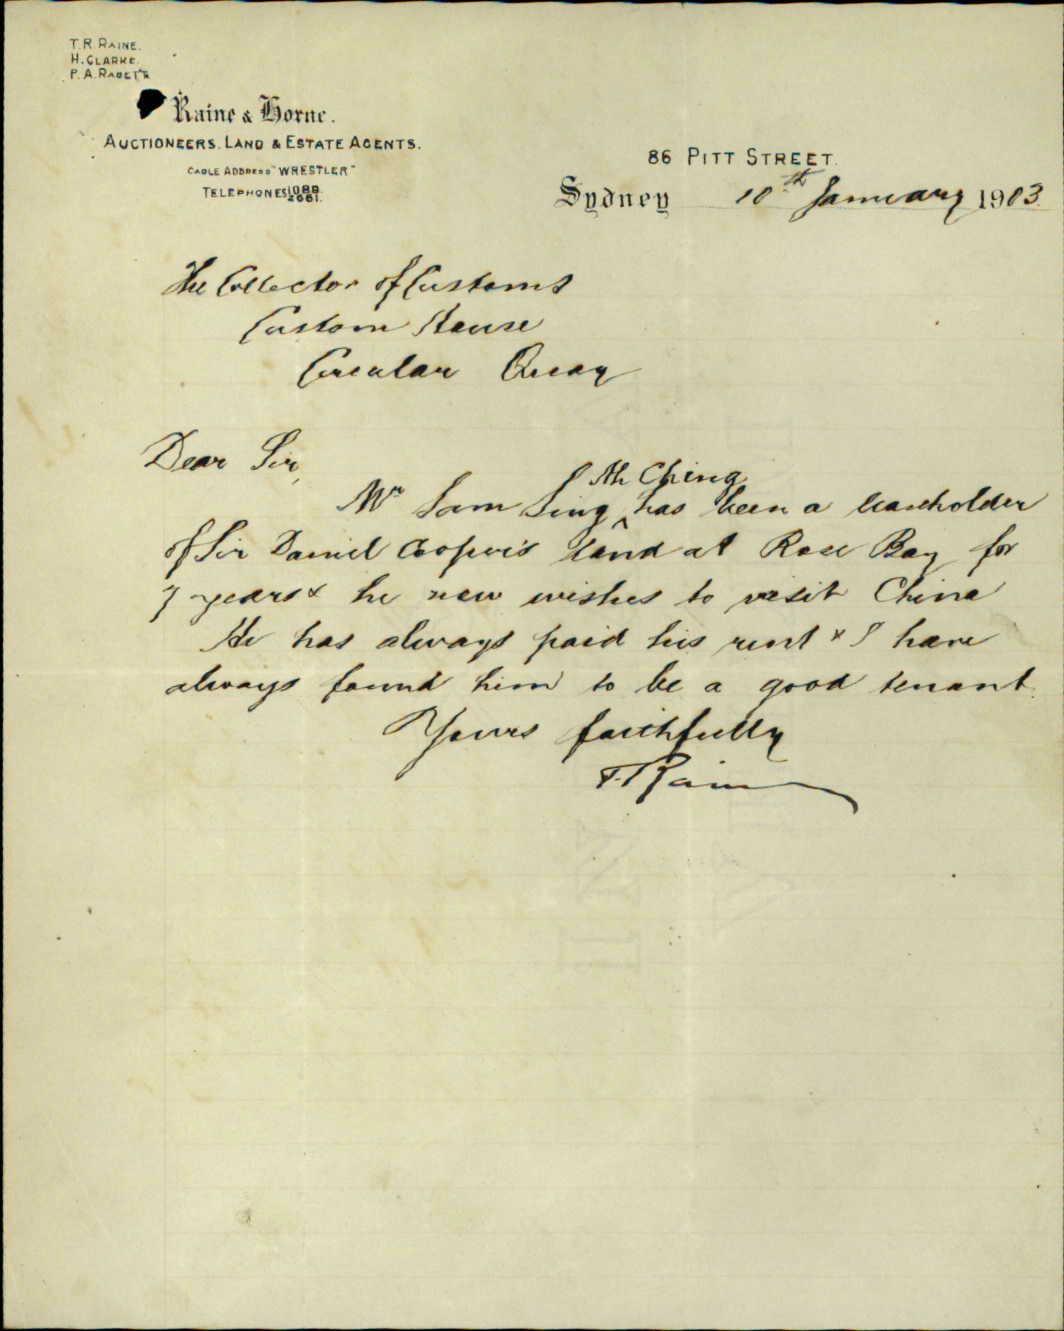 T. R. RAINE.
H. CLARKE.
P. A. RABETT
Raine & Horne.
AUCTIONEERS. LAND & ESTATE AGENTS.
CABLE ADDRESS "WRESTLER"
TELEPHONES 1088 2661.
86 PITT STREET.
Sydney 10th January 1903
The Collector of Customs
Custom House
Circular Quay
Dear Sir,
Ah Ching
Mr Sam Sing ^ has been a leaseholder
of Sir Daniel Cooper's land at Rose Bay for
7 years & he now wishes to visit China
He has always paid his rent & I have
always found him to be a good tenant.
Yours faithfully
T. Raine